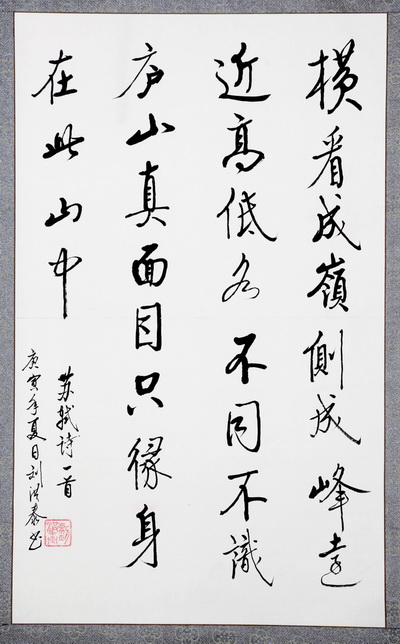 横看成嶺側成峰遠
近高低各不同不識
庐山真面目只緣身
在此山中
苏轼诗一首
庚寅年夏日刘洪泰书